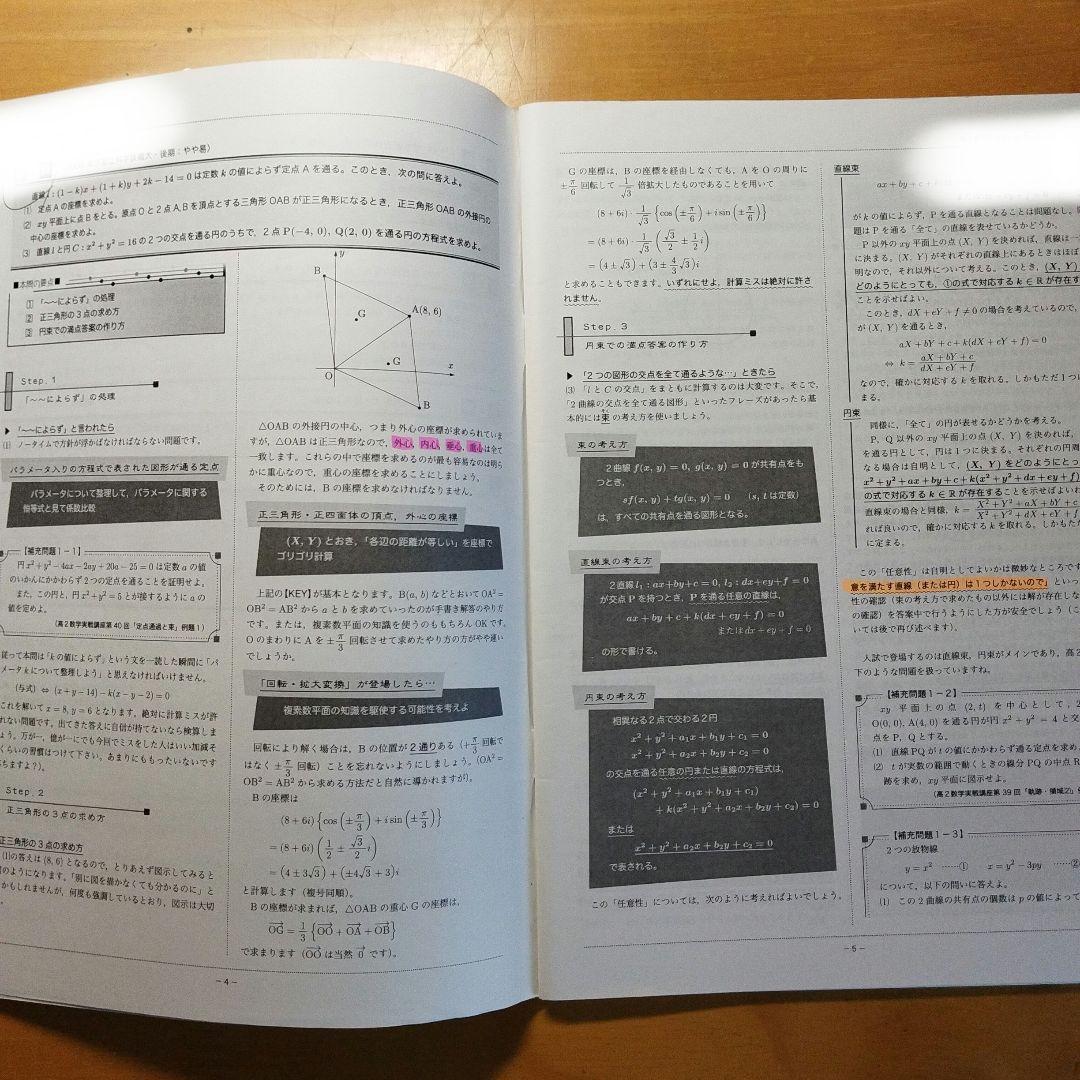 ・後期：やや易）
直線 l : (1−k)x+(1+k)y+2k−14=0 は定数 k の値によらず定点 A を通る。このとき，次の問に答えよ。
(1) 定点 A の座標を求めよ。
(2) xy 平面上に点 B をとる。原点 O と 2 点 A, B を頂点とする三角形 OAB が正三角形になるとき，正三角形 OAB の外接円の
中心の座標を求めよ。
(3) 直線 l と円 C : x²+y²=16 の 2 つの交点を通る円のうちで，2 点 P(−4, 0), Q(2, 0) を通る円の方程式を求めよ。
■本問の要点■
1 「〜〜によらず」の処理
2 正三角形の3点の求め方
3 円束での満点答案の作り方
Step.1
「〜〜によらず」の処理
▶ 「〜〜によらず」と言われたら
(1) ノータイムで方針が浮かばなければならない問題です。
パラメータ入りの方程式で表された図形が通る定点
パラメータについて整理して，パラメータに関する
恒等式と見て係数比較
【補充問題1−1】
円 x²+y²−4ax−2ay+20a−25=0 は定数 a の値
のいかんにかかわらず2つの定点を通ることを証明せよ。
また，この円と，円 x²+y²=5 とが接するように a の
値を定めよ。
（高2数学実戦講座第40回「定点通過と束」例題1）
従って本問は「k の値によらず」という文を一読した瞬間に「パ
メータ k について整理しよう」と思えなければいけません。
(与式) ⇔ (x+y−14)−k(x−y−2)=0
これを解いて x=8, y=6 となります。絶対に計算ミスが許
れない問題です。出てきた答えに自信が持てないなら検算しま
ょう。万が一，億が一にでも今回でミスをした人はいい加減そ
くらいの習慣はつけて下さい。あまりにももったいないです
ちますよ？)。
Step.2
正三角形の3点の求め方
正三角形の3点の求め方
(1)の答えは (8, 6) となるので，とりあえず図示してみると
のようになります。「別に図を描かなくても分かるのに」と
かもしれませんが，何度も強調しているとおり，図示は大切
y
B
G
A(8, 6)
G
x
O
B
△OAB の外接円の中心，つまり外心の座標が求められていま
すが，△OAB は正三角形なので，外心，内心，垂心，重心は全て
一致します。これらの中で座標を求めるのが最も容易なのは明ら
かに重心なので，重心の座標を求めることにしましょう。
そのためには，B の座標を求めねばなりません。
正三角形・正四面体の頂点，外心の座標
(X, Y) とおき，「各辺の距離が等しい」を座標で
ゴリゴリ計算
上記の【KEY】が基本となります。B(a, b) などとおいて OA²=
OB²=AB² から a と b を求めていったのが手書き解答のやり方
です。または，複素数平面の知識を使うのももちろん OK です。
O のまわりに A を ±π/3 回転させて求めたやり方の方がやや速い
でしょうか。
「回転・拡大変換」が登場したら…
複素数平面の知識を駆使する可能性を考えよ
回転により解く場合は，B の位置が2通りある（+π/3 回転で
はなく ±π/3 回転）ことを忘れないようにしましょう。（OA²=
OB²=AB² から求める方法だと自然に導かれますが）。
B の座標は
(8+6i){cos(±π/3)+i sin(±π/3)}
=(8+6i)(1/2 ± √3/2 i)
=(4±3√3)+(±4√3+3)i
と計算します（複号同順）。
B の座標が求まれば，△OAB の重心 G の座標は，
OG=1/3{OO+OA+OB}
で求まります（OO は当然 0 です）。
−4−
G の座標は，B の座標を経由しなくても，A を O の周りに
±π/6 回転して 1/√3 倍拡大したものであることを用いて
(8+6i)·1/√3{cos(±π/6)+i sin(±π/6)}
=(8+6i)·1/√3(√3/2 ± 1/2 i)
=(4±√3)+(3±4/3√3)i
と求めることもできます。いずれにせよ，計算ミスは絶対に許さ
れません。
Step.3
円束での満点答案の作り方
▶ 「2つの図形の交点を全て通るような…」ときたら
(3) 「l と C の交点」をまともに計算するのは大変です。そこで，
「2曲線の交点を全て通る図形」といったフレーズがあったら基
本的には束の考え方を使いましょう。
束の考え方
2曲線 f(x, y)=0, g(x, y)=0 が共有点をも
つとき，
sf(x, y)+tg(x, y)=0　(s, t は定数)
は，すべての共有点を通る図形となる。
直線束の考え方
2直線 l₁ : ax+by+c=0, l₂ : dx+ey+f=0
が交点 P を持つとき，P を通る任意の直線は，
ax+by+c+k(dx+ey+f)=0
または dx+ey+f=0
の形で書ける。
円束の考え方
相異なる2点で交わる2円
x²+y²+a₁x+b₁y+c₁=0
x²+y²+a₂x+b₂y+c₂=0
の交点を通る任意の円または直線の方程式は，
(x²+y²+a₁x+b₁y+c₁)
+k(x²+y²+a₂x+b₂y+c₂)=0
または
x²+y²+a₂x+b₂y+c₂=0
で表される。
この「任意性」については，次のように考えればよいでしょう。
直線束
ax+by+c+
が k の値によらず，P を通る直線となることは問題なし。
題は P を通る「全て」の直線を表せているかどうか。
P 以外の xy 平面上の点 (X, Y) を決めれば，直線は一
に決まる。(X, Y) がそれぞれの直線上にあるときはほぼ
明なので，それ以外について考える。このとき，(X, Y)
どのようにとっても，①の式で対応する k∈R が存在す
ことを示せばよい。
このとき，dX+eY+f≠0 の場合を考えているので，
が (X, Y) を通るとき，
aX+bY+c+k(dX+eY+f)=0
⇔ k=aX+bY+c/dX+eY+f
なので，確かに対応する k を取れる。しかもただ1つ
まる。
円束
同様に，「全て」の円が表せるかどうかを考える。
P, Q 以外の xy 平面上の点 (X, Y) を決めれば，
を通る円として，円は1つに決まる。それぞれの円周
なる場合は自明として，(X, Y) をどのようにとっ
x²+y²+ax+by+c+k(x²+y²+dx+ey+f)
の式で対応する k∈R が存在することを示せばよいわ
直線束の場合と同様，k=X²+Y²+aX+bY+c/X²+Y²+dX+eY+f
れば良いので，確かに対応する k を取れる。しかもただ
に定まる。
この「任意性」は自明としてよいかは微妙なところです
意を満たす直線（または円）は1つしかないので」といっ
性の確認（束の考え方で求めたもの以外には解が存在しな
の確認）を答案中で行うようにした方が安全でしょう（こ
いては後で再び述べます）。
入試で登場するのは直線束，円束がメインであり，高2
下のような問題を扱っていますね。
【補充問題1−2】
xy 平面上の点 (2, t) を中心として，2
O(0, 0), A(4, 0) を通る円が円 x²+y²=4 と交
点を P, Q とする。
(1) 直線 PQ が t の値にかかわらず通る定点を求め
(2) t が実数の範囲で動くときの線分 PQ の中点 R
跡を求め，xy 平面に図示せよ。
（高2数学実戦講座第39回「軌跡・領域②」
【補充問題1−3】
2つの放物線
y=x² ……①　x=y²−3py ……②
について，以下の問いに答えよ。
(1) この2曲線の共有点の個数は p の値によって